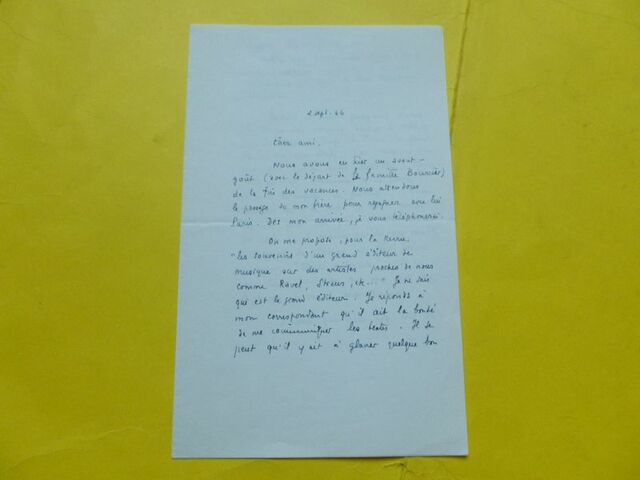 2 sept. 46
Cher ami.
Nous avons eu hier un avant-
goût (avec le départ de la famille Bourrier)
de la fin des vacances. Nous attendons
le passage de mon frère pour regagner avec lui
Paris. Dès mon arrivée, je vous téléphonerai.
On me propose, pour la Revue,
"les souvenirs d'un grand éditeur de
musique sur des artistes proches de nous
comme Ravel, Straus, etc..." Je ne sais
qui est le grand éditeur. Je réponds à
mon correspondant qu'il ait la bonté
de me communiquer les textes. Il se
peut qu'il y ait à glaner quelque bon